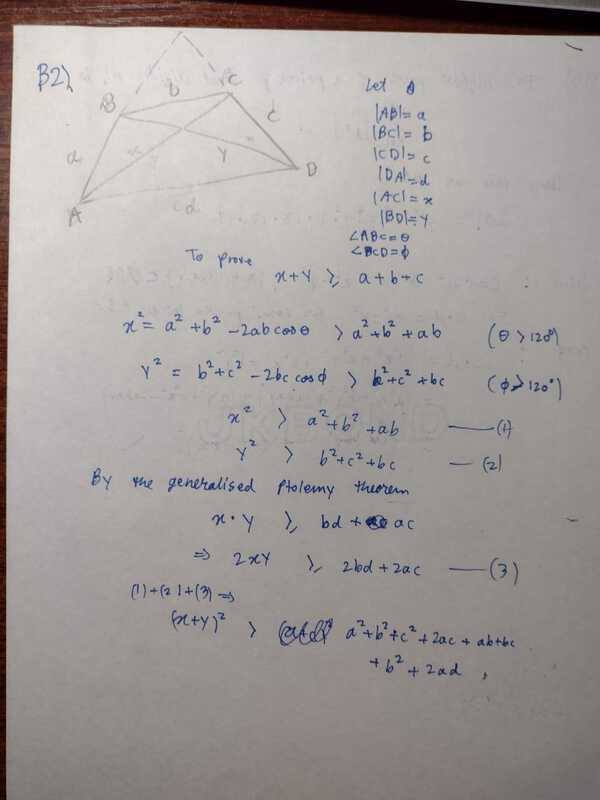 B2)
B
b
C
a
c
x
y
D
A
d
Let
|AB| = a
|BC| = b
|CD| = c
|DA| = d
|AC| = x
|BD| = y
∠ABC = θ
∠BCD = ϕ
To prove
x+y ≥ a+b+c
x² = a² + b² - 2ab cosθ > a² + b² + ab (θ > 120°)
y² = b² + c² - 2bc cosϕ > b² + c² + bc (ϕ > 120°)
x² > a² + b² + ab —— (1)
y² > b² + c² + bc — (2)
By the generalised Ptolemy theorem
x · y ≥ bd + ac
⇒ 2xy ≥ 2bd + 2ac —— (3)
(1) + (2) + (3) ⇒
(x+y)² > a² + b² + c² + 2ac + ab + bc
+ b² + 2ad,